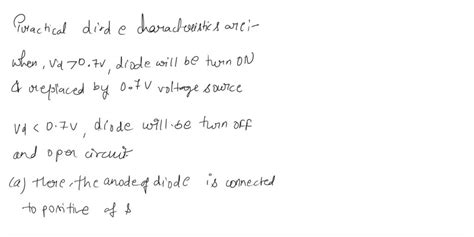 Practical diode characteristics are:-
when, Vd > 0.7V, diode will be turn ON
& replaced by 0.7V voltage source
Vd < 0.7V, diode will be turn off
and open circuit
(a) Here, the anode of diode is connected
to positive of s